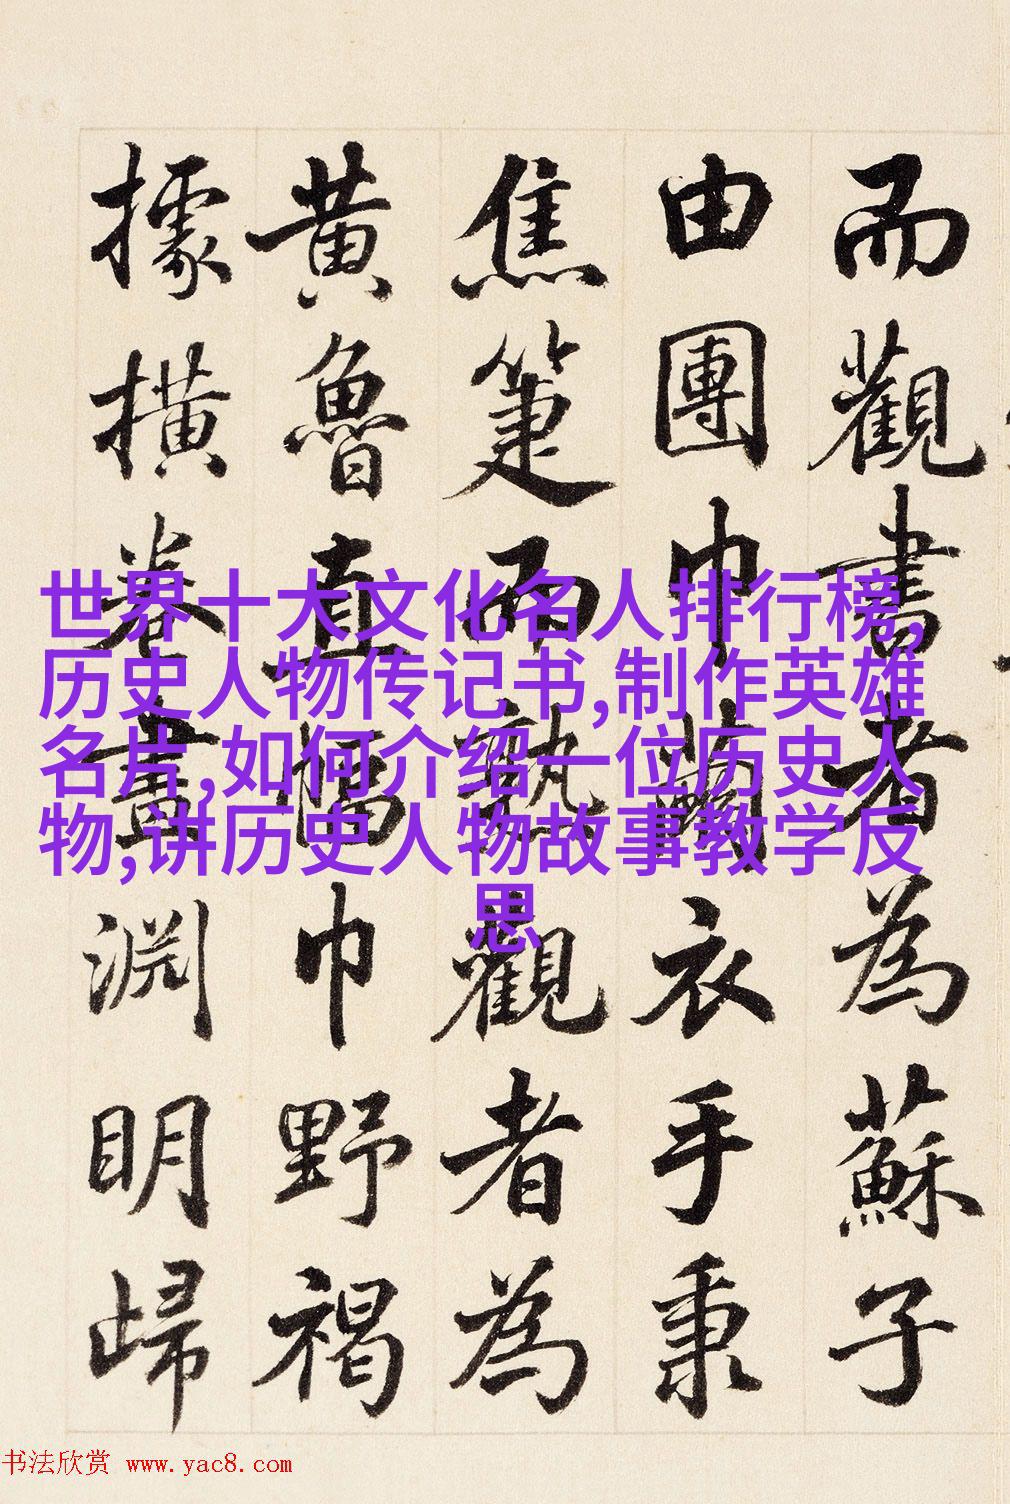 而觀書者為蘇子
由團巾繭衣手秉
焦箑而熟觀者為
黃魯直幅巾野褐
據橫卷畫淵明歸
世界十大文化名人排行榜,
历史人物传记书,制作英雄
名片,如何介绍一位历史人
物,讲历史人物故事教学反
思
书法欣赏 www.yac8.com